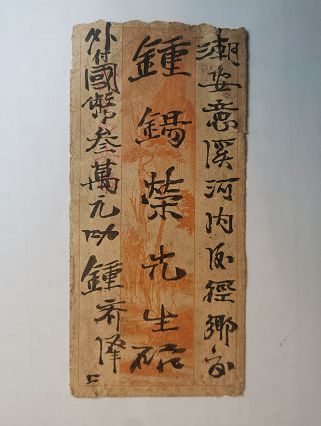 潮安意溪河内後徑鄉交
鍾錫榮先生啟
外付國幣叁萬元 鍾喬澤